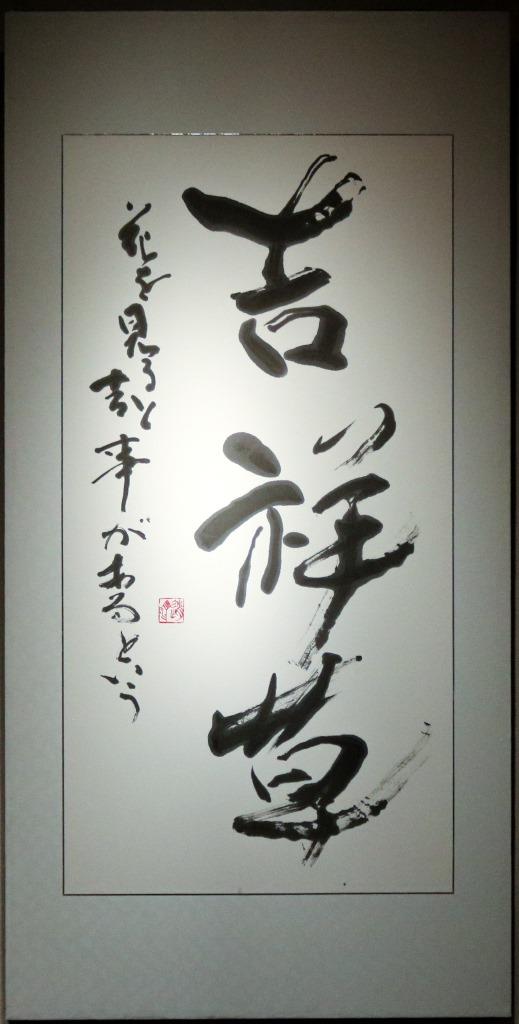 吉祥草
花を見ると吉事があるという